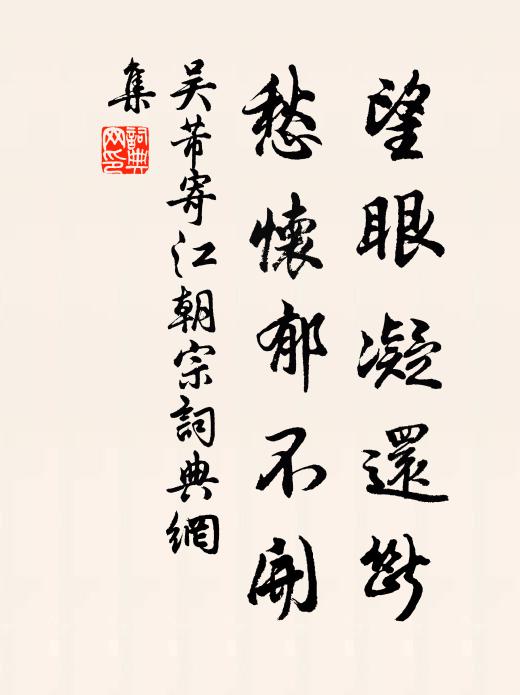 望眼凝還斷
愁懷郁不開
吴芾寄江朝宗詞典網
集
詞典網印